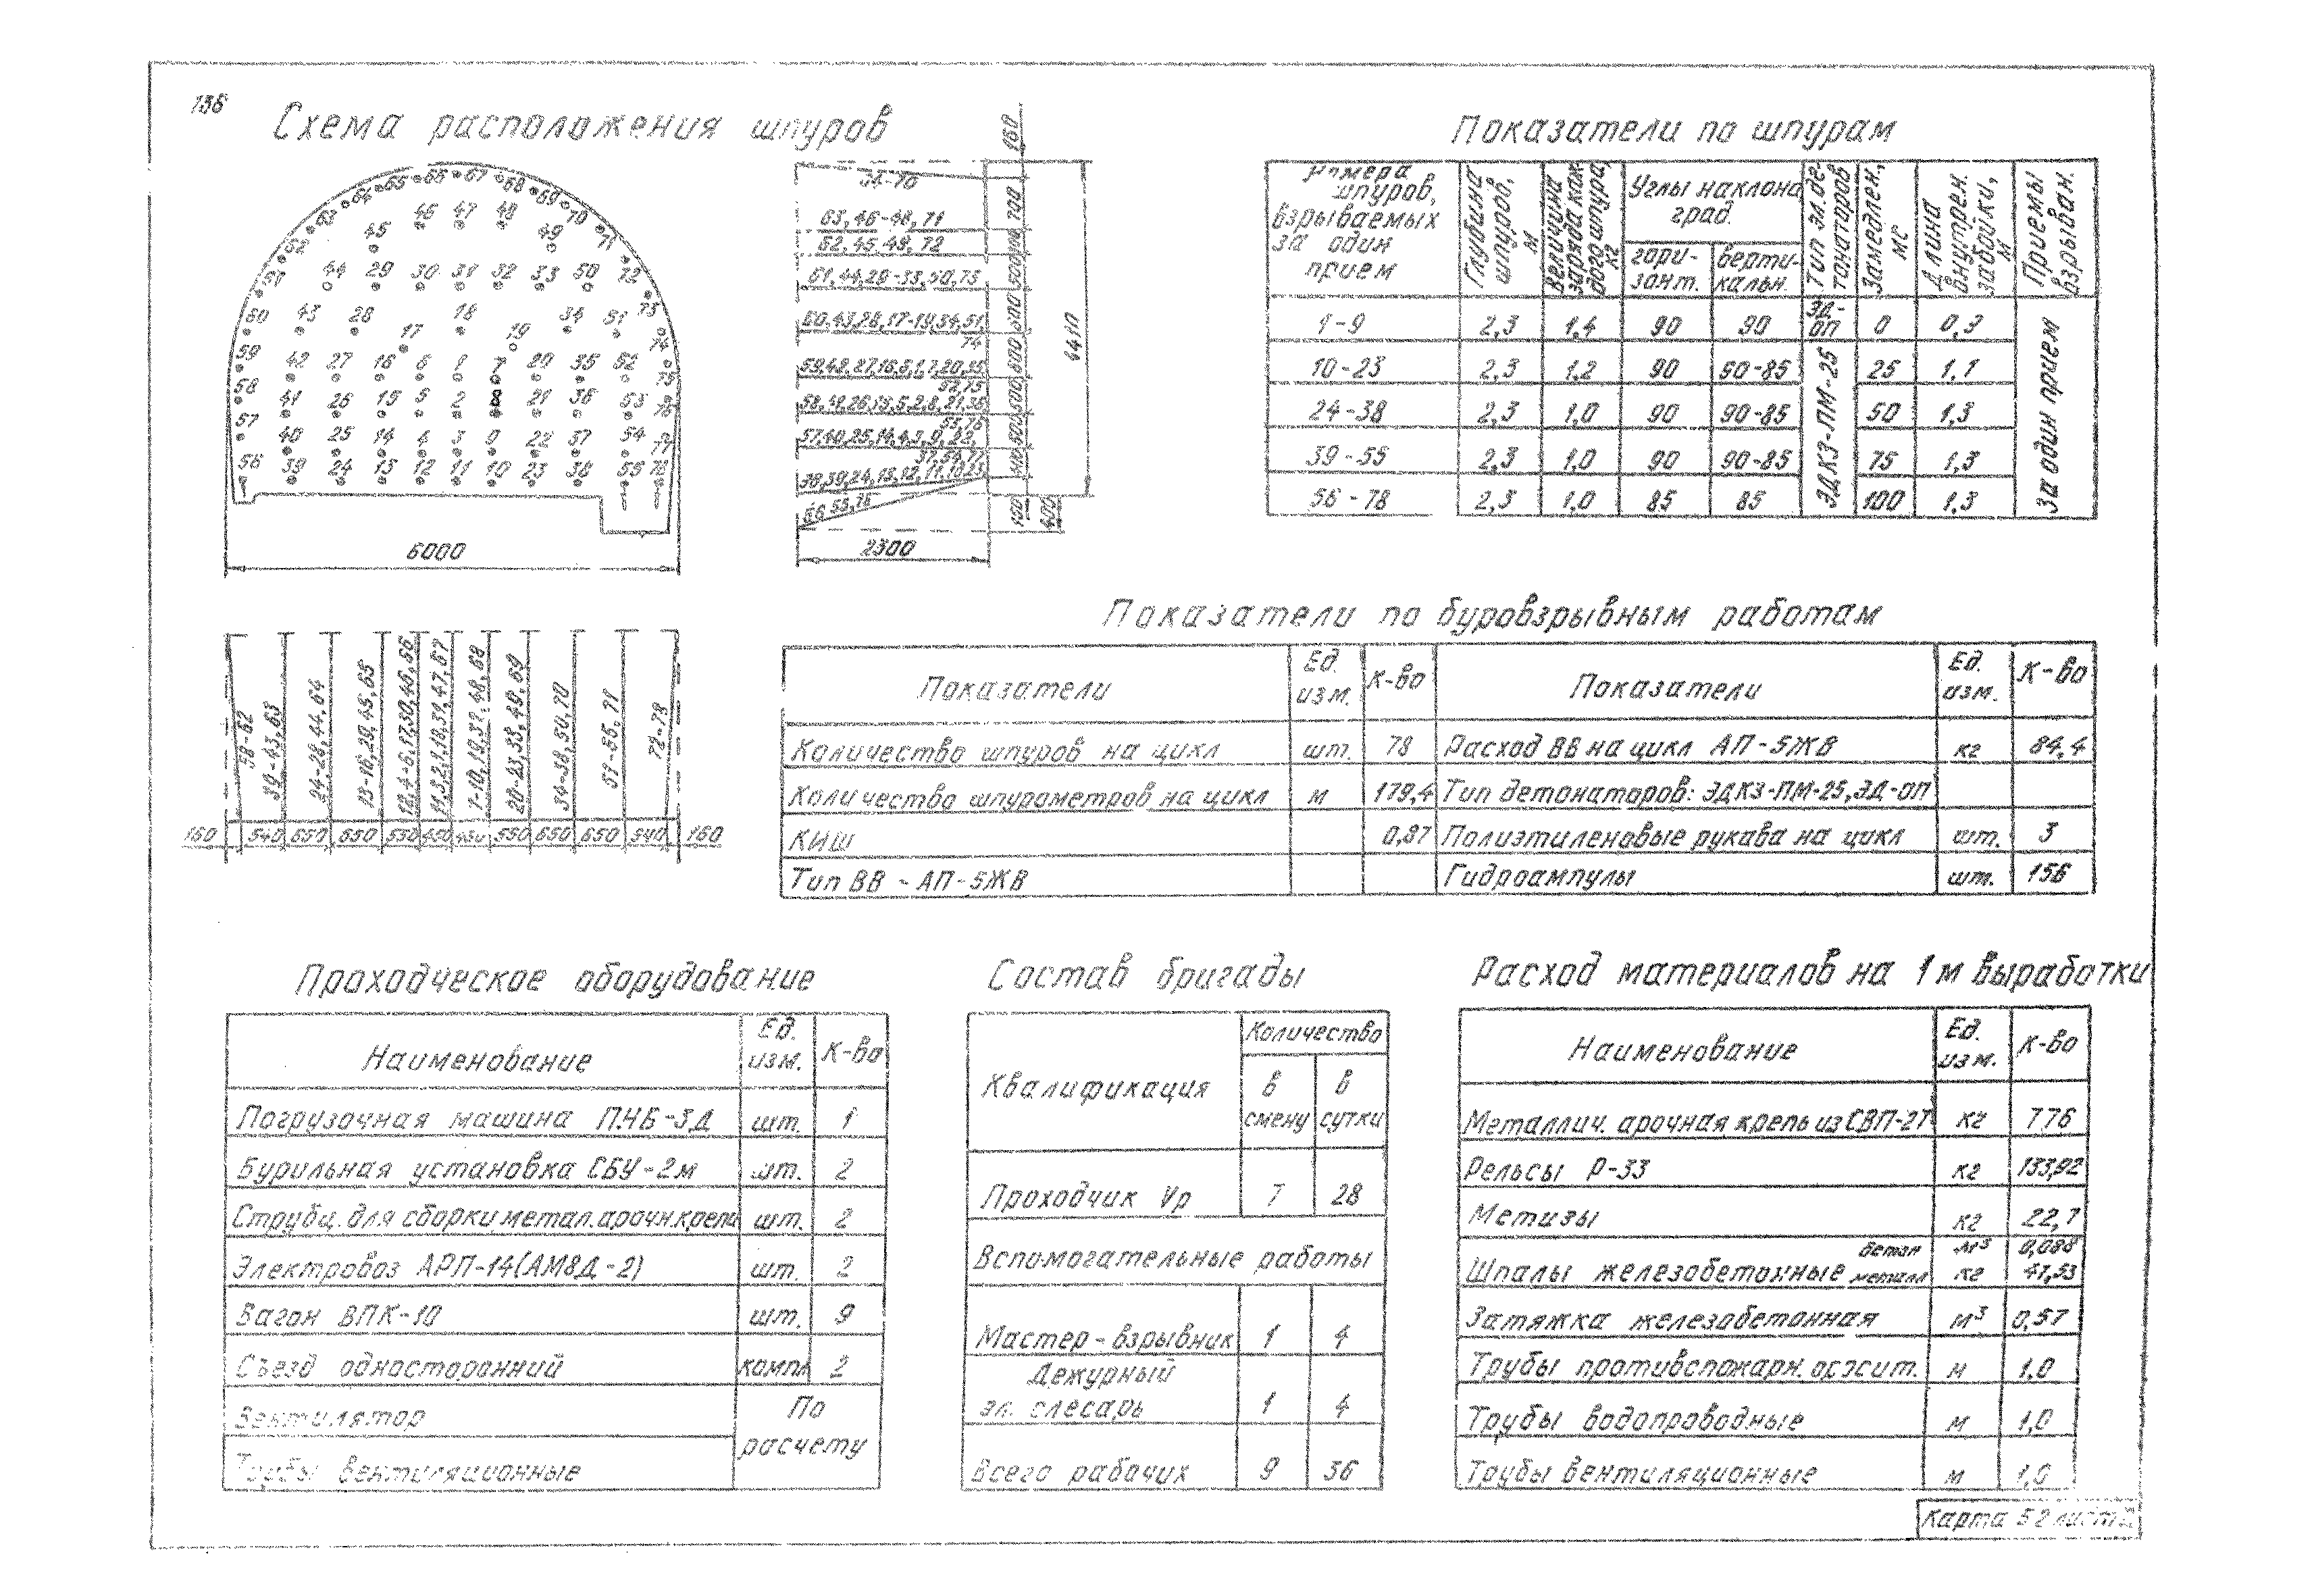 136
Схема расположения шпуров
64 65 66 67 68 69 70
63 46 47 48 71
62 45 49 72
61 44 29 30 31 32 33 50 73
60 43 28 17 18 19 34 51 74
59 42 27 16 6 1 7 20 35 52 75
58 41 26 15 5 2 8 21 36 53 76
57 40 25 14 4 3 9 22 37 54 77
56 39 24 13 12 11 10 23 38 55 78
6000
64-70
63,46-48,71
62,45,49,72
61,44,29-33,50,73
60,43,28,17-19,34,51,
74
59,42,27,16,6,1,7,20,35
52,75
58,41,26,15,5,2,8,21,36
53,76
57,40,25,14,4,3,9,22,
37,54,77
38,39,24,13,12,11,10,23
56 55,78
2300
160
700
500
500
600
500
500
100
400
4410
58-62
39-43,63
24-28,44,64
13-16,29,45,65
12,4-6,17,30,46,66
11,3,2,1,18,31,47,67
7-10,19,32,48,68
20-23,33,49,69
34-38,50,70
51-55,71
72-78
160 540 650 650 550 450 450 550 650 650 540 160
Показатели по шпурам
Номера шпуров, взрываемых за один прием
Глубина шпуров, м
Величина заряда каждого шпура, кг
Углы наклона, град.
гори-зонт.
верти-кальн.
Тип эл.де-тонаторов
Замедлен., мс
Длина внутрен. забойки, м
Приемы взрыван.
1-9 2,3 1,4 90 90 ЭД-ОП 0 0,9
10-23 2,3 1,2 90 90-85 25 1,1
24-38 2,3 1,0 90 90-85 50 1,3
39-55 2,3 1,0 90 90-85 75 1,3
56-78 2,3 1,0 85 85 100 1,3
ЭДКЗ-ПМ-25
За один прием
Показатели по буровзрывным работам
Показатели Ед. изм. К-во Показатели Ед. изм. К-во
Количество шпуров на цикл шт. 78 Расход ВВ на цикл АП-5ЖВ кг 84,4
Количество шпурометров на цикл м 179,4 Тип детонаторов: ЭДКЗ-ПМ-25, ЭД-ОП
КИШ 0,87 Полиэтиленовые рукава на цикл шт. 3
Тип ВВ - АП-5ЖВ Гидроампулы шт. 156
Проходческое оборудование
Наименование Ед. изм. К-во
Погрузочная машина ПНБ-3Д шт. 1
Бурильная установка СБУ-2м шт. 2
Струбц. для сборки метал.арочн.крепи шт. 2
Электровоз АРП-14(АМ8Д-2) шт. 2
Вагон ВПК-10 шт. 9
Съезд односторонний компл 2
Вентилятор По расчету
Трубы вентиляционные
Состав бригады
Квалификация Количество
в смену в сутки
Проходчик Vр 7 28
Вспомогательные работы
Мастер-взрывник 1 4
Дежурный
эл. слесарь 1 4
Всего рабочих 9 36
Расход материалов на 1 м выработки
Наименование Ед. изм. К-во
Металлич. арочная крепь из СВП-27 кг 776
Рельсы Р-33 кг 133,92
Метизы кг 22,7
бетон м³ 0,088
Шпалы железобетонные металл кг 41,53
Затяжка железобетонная м³ 0,57
Трубы противопожарн. оросит. м 1,0
Трубы водопроводные м 1,0
Трубы вентиляционные м 1,0
Карта 52 лист 2